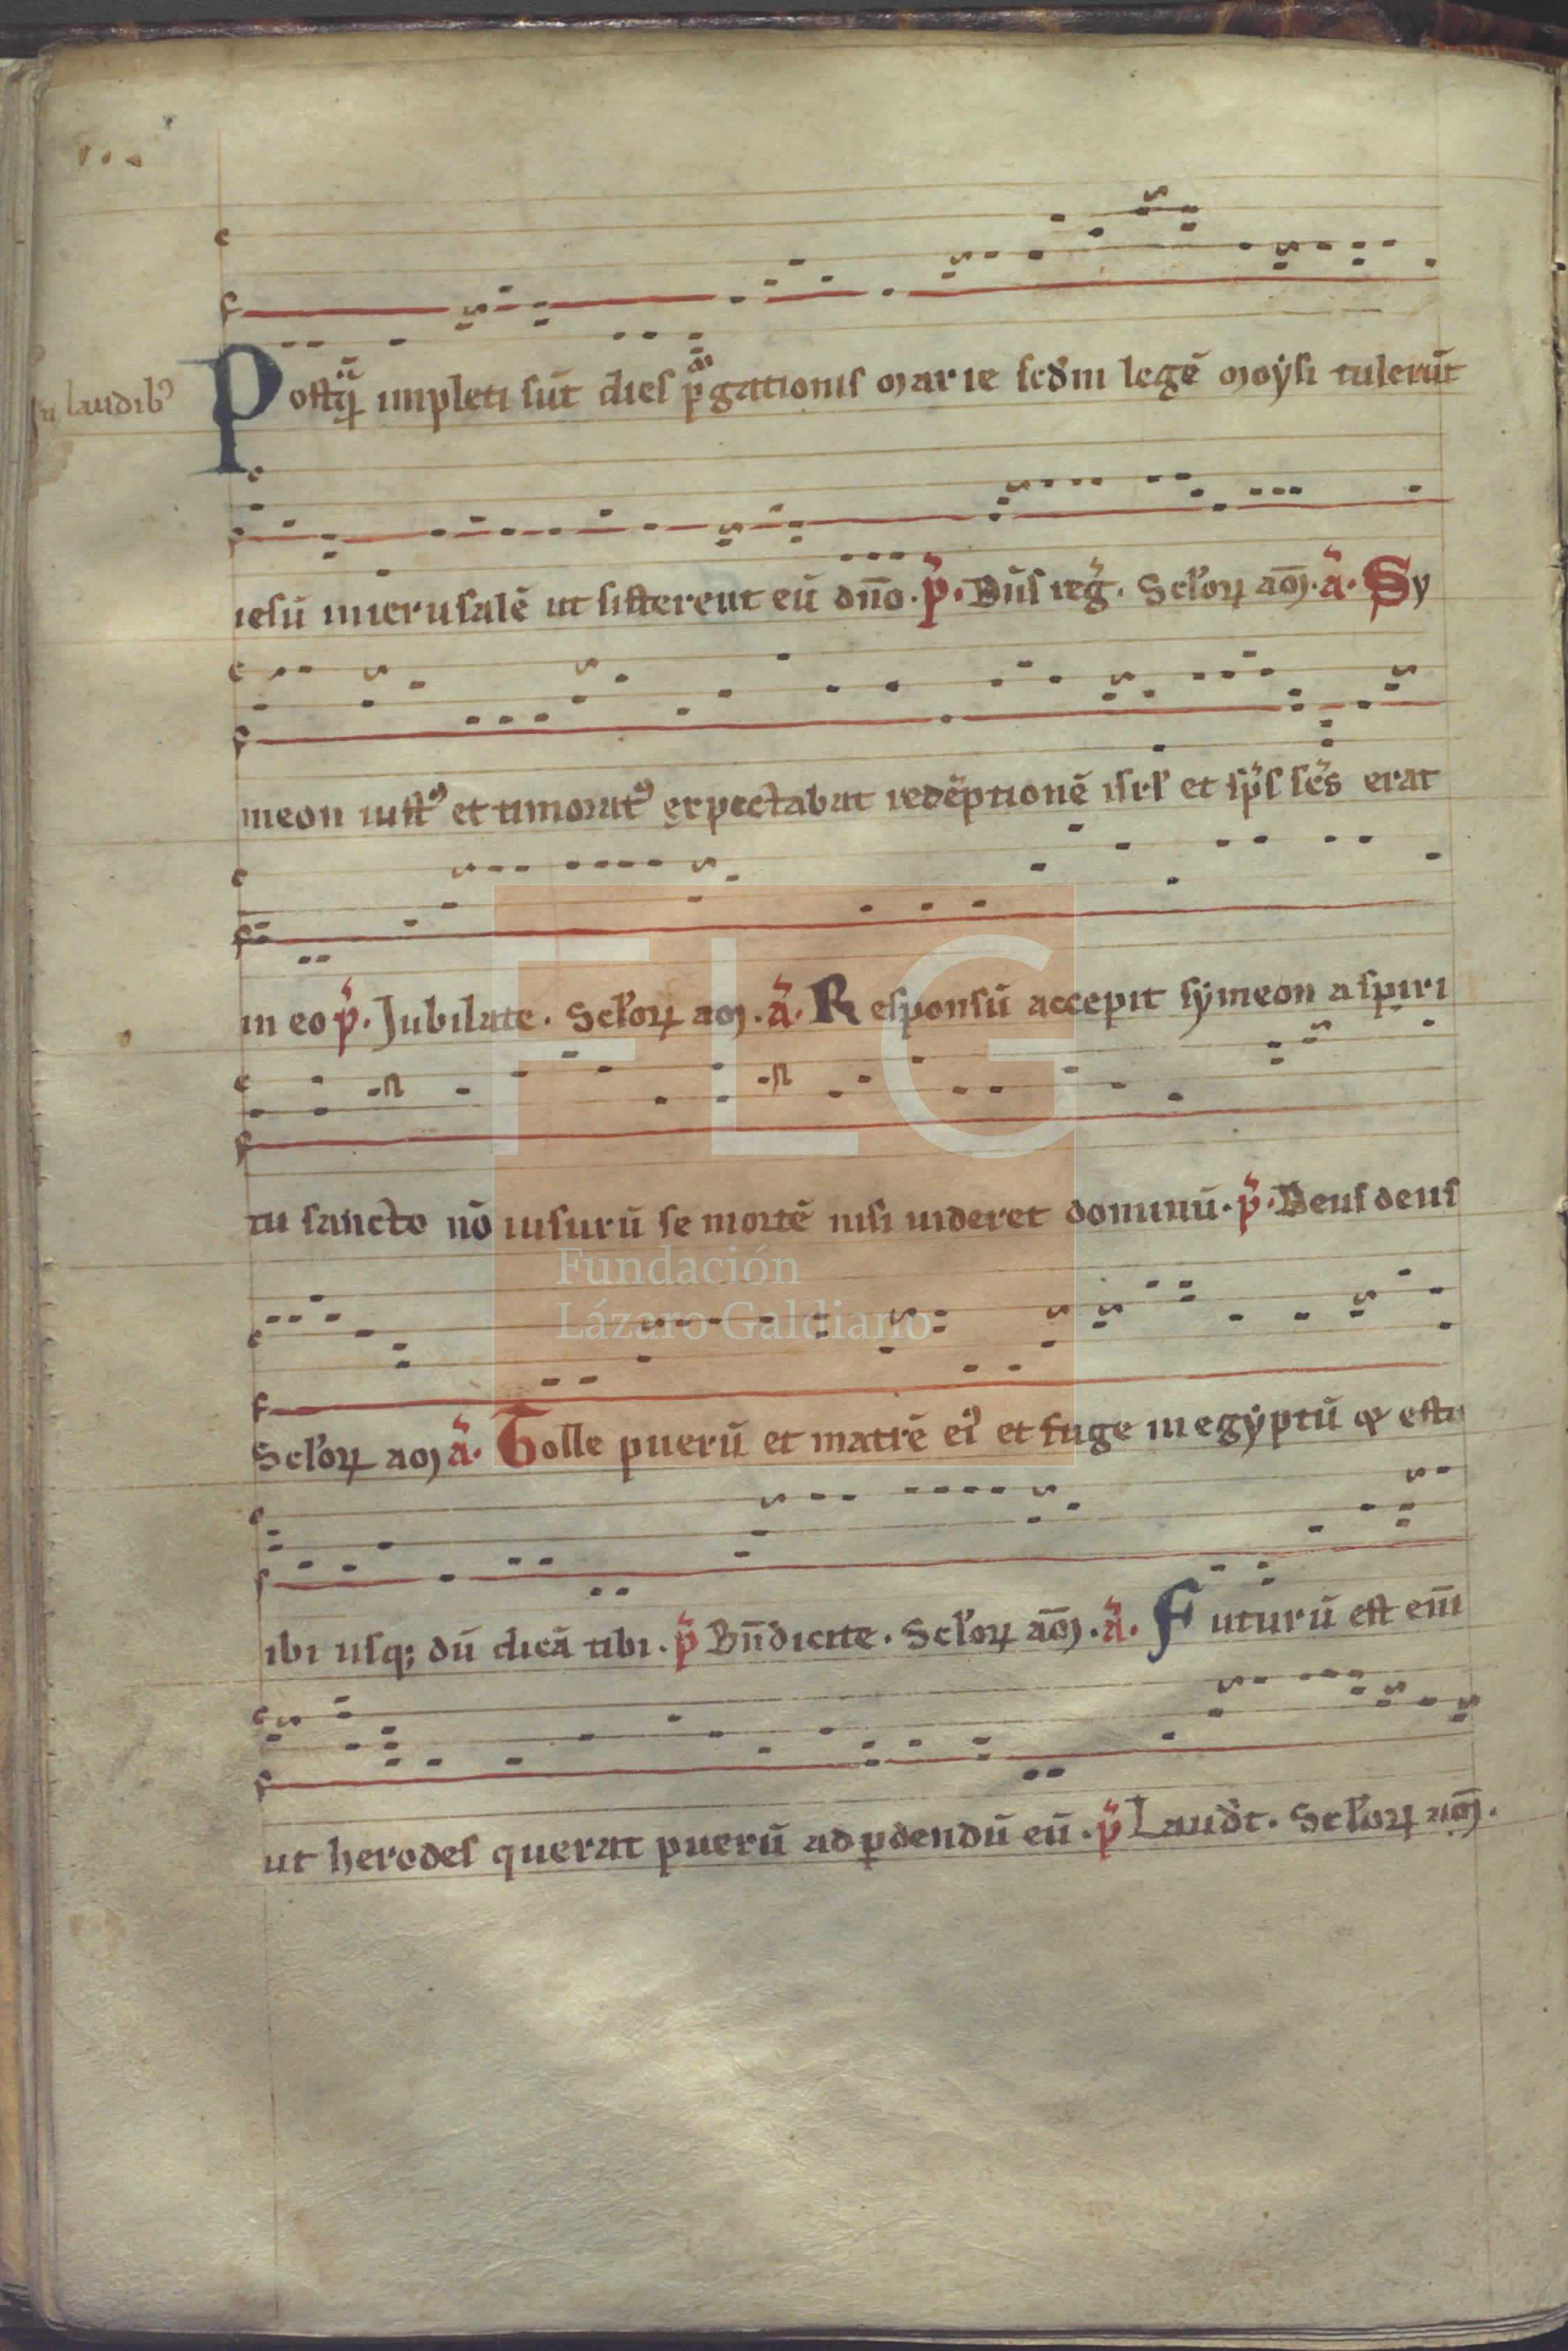 In laudib⁹
Postq̃ impleti sũt dies pᵃgationis marie scd̃m legẽ moẏsi tulerũt
iesũ inierusalẽ ut sisterent eũ dñó. p̃. Dñs reg̃. Sclõꝝ am̃. ã. Sy
meon iust⁹ et timorat⁹ expectabat redẽptionẽ isrl̃ et sp̃s sc̃s erat
in eo p̃. Jubilate. Sclõꝝ am. ã. Responsũ accepit sẏmeon a spiri
tu sancto nõ uisurũ se mortẽ nisi uideret dominũ. p̃. Deus deus
Sclõꝝ am ã. Tolle puerũ et matrẽ ei⁹ et fuge in egẏptũ ⁊ esto
ibi usq; dũ dicã tibi. p̃ Bñdicite. Sclõꝝ am̃. ã. Futurũ est em̃
ut herodes querat puerũ ad ꝑdendũ eũ. p̃ Laudt̃. Sclõꝝ am̃.
FLG
Fundación
Lázaro Galdiano